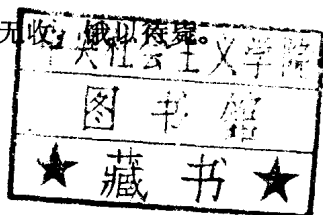 无收，饿以待毙。
中央社会主义学院
图书馆
★藏书★